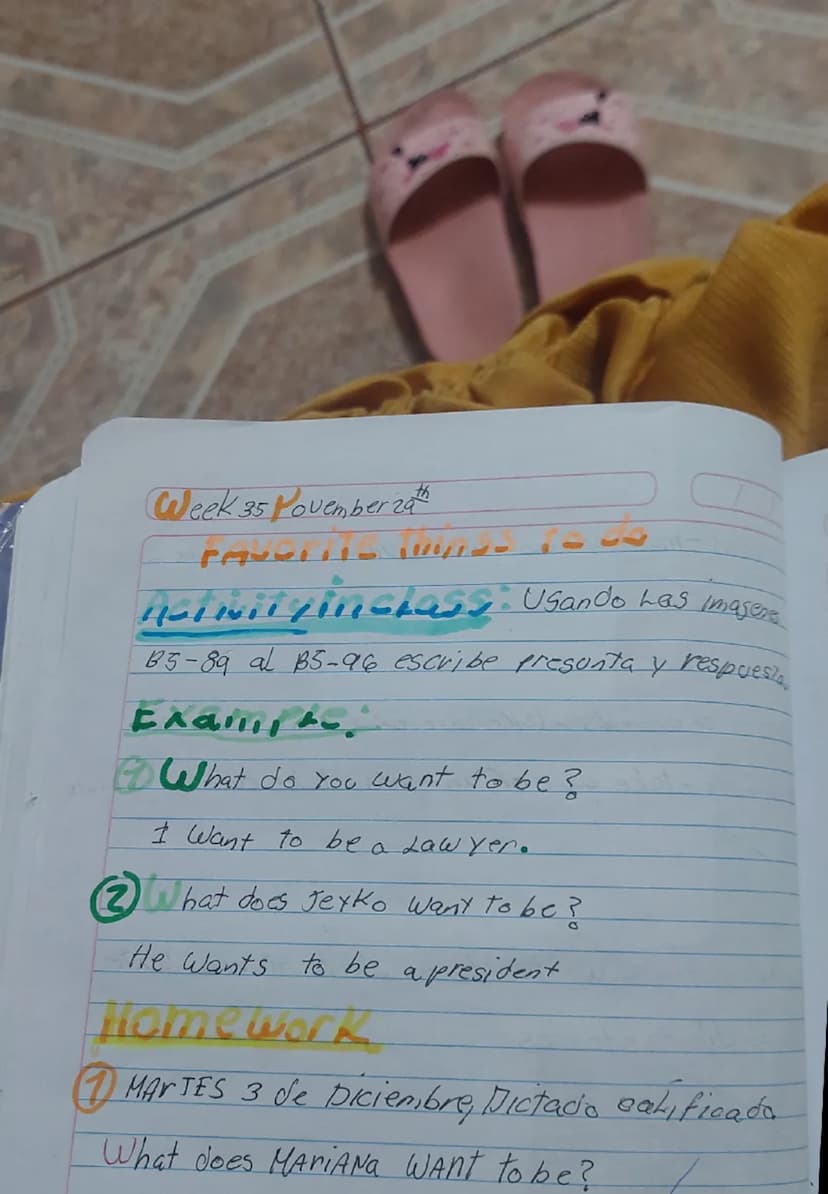 Week 35 November 29th
Favorite Things to do
Activity in class: Usando Las imagenes
B5-89 al B5-96 escribe pregunta y respuesta
Example:
1 What do you want to be?
I want to be a Lawyer.
2 What does Jeyko want to be?
He wants to be a president
Homework
1 MArTES 3 de Diciembre, Dictado calificado
What does MAriANa WANT to be?